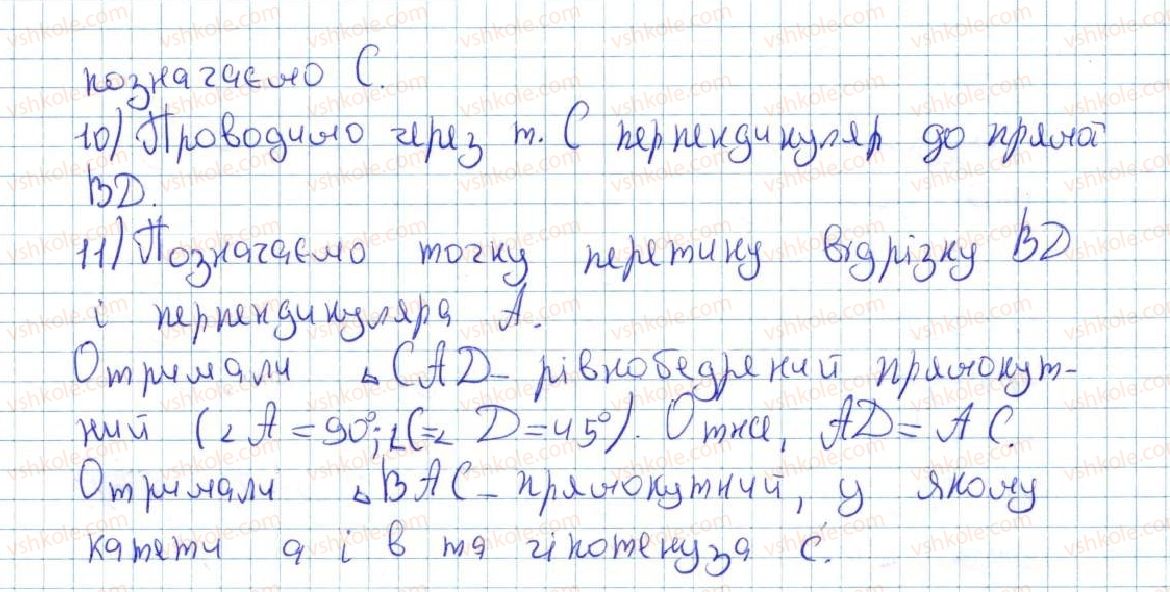 позначаємо С.
10) Проводимо через т. С перпендикуляр до прямої
BD.
11) Позначаємо точку перетину відрізку BD
і перпендикуляра А.
Отримали △CAD – рівнобедрений прямокут-
ний (∠A = 90°; ∠C = ∠D = 45°). Отже, AD = AC.
Отримали △BAC – прямокутний, у якому
катети а і в та гіпотенуза с.